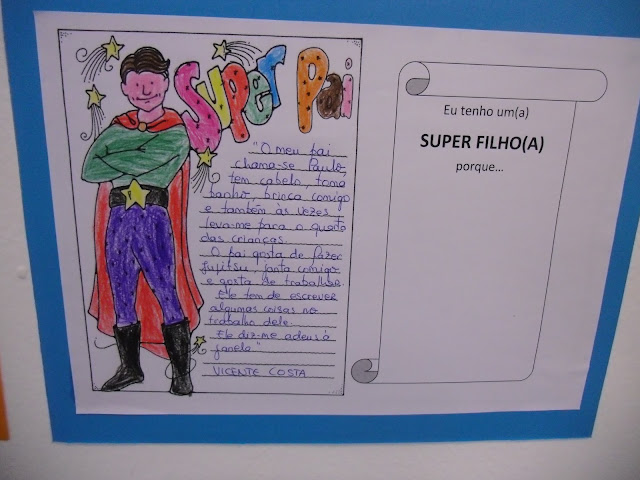 Super Pai
"O meu pai
chama-se Paulo,
tem cabelo, toma
banho, brinca comigo
e também às vezes
leva-me para o quarto
das crianças.
O pai gosta de fazer
jujitsu, janta comigo
e gosta de trabalhar.
Ele tem de escrever
algumas coisas no
trabalho dele.
Ele diz-me adeus à
janela."
VICENTE COSTA
Eu tenho um(a)
SUPER FILHO(A)
porque...